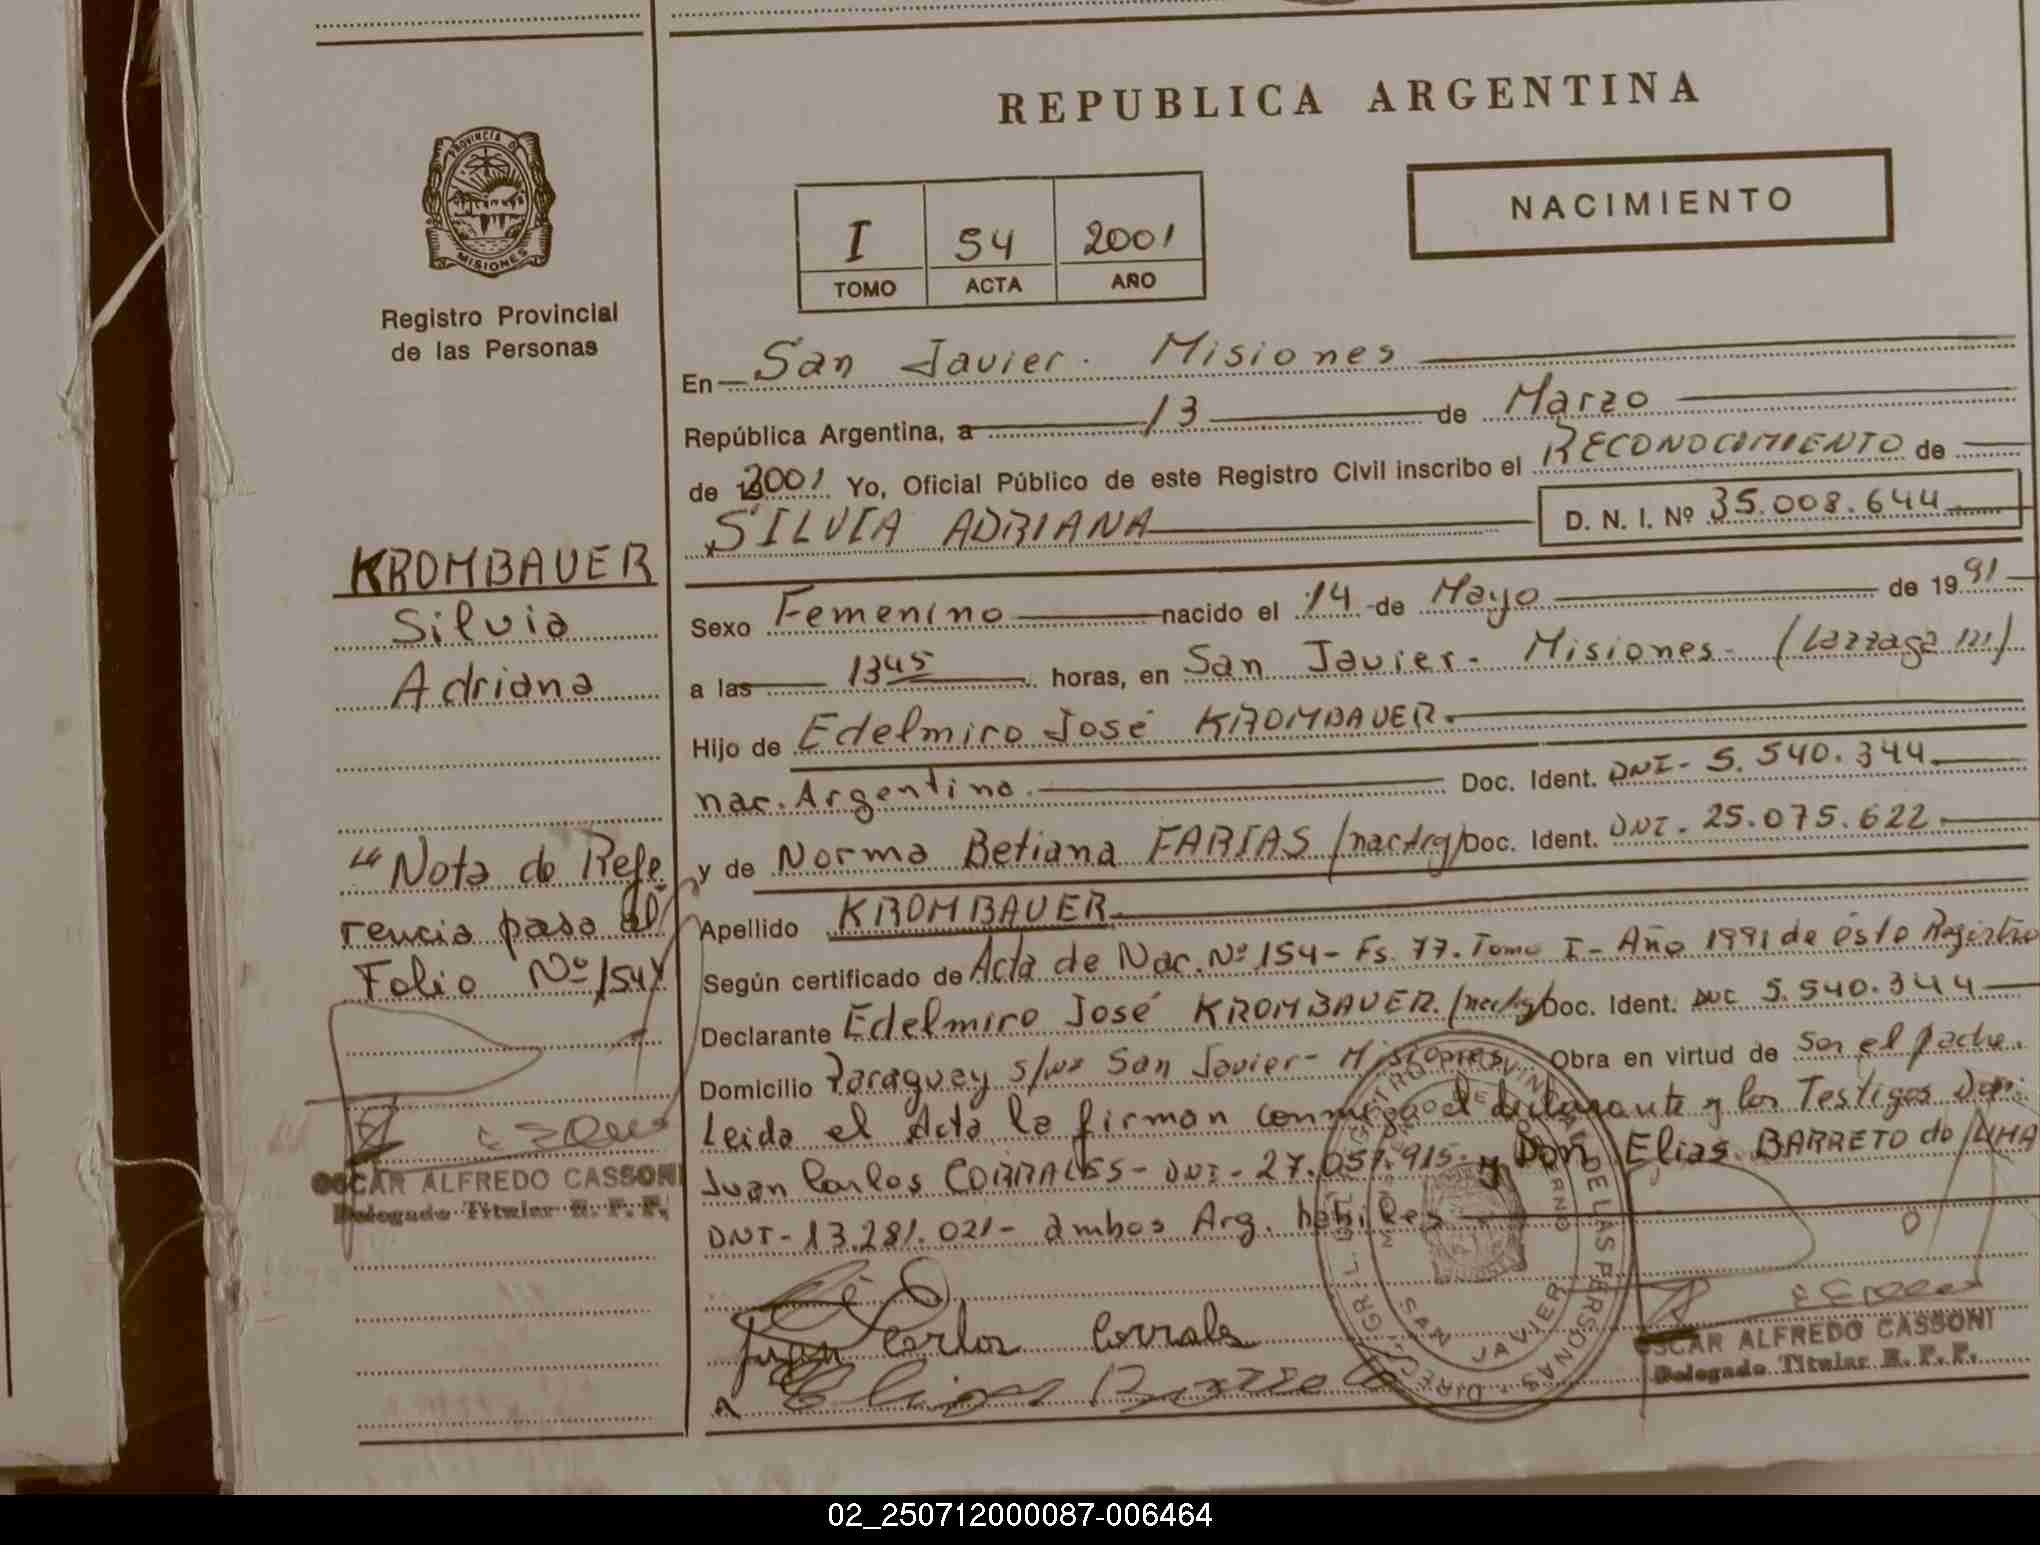 REPUBLICA ARGENTINA
PROVINCIA DE
MISIONES
Registro Provincial
de las Personas
NACIMIENTO
I 54 2001
TOMO ACTA AÑO
En San Javier. Misiones
República Argentina, a 13 de Marzo
de 2001 Yo, Oficial Público de este Registro Civil inscribo el RECONOCIMIENTO de
SILVIA ADRIANA D. N. I. Nº 35.008.644
Sexo Femenino nacido el 14 de Mayo de 1991
a las 1345 horas, en San Javier - Misiones -
Hijo de Edelmiro José KROMBAUER.
nac. Argentino. Doc. Ident. DNI - 5.540.344
y de Norma Betiana FARIAS /nac Arg/ Doc. Ident. DNI. 25.075.622
Apellido KROMBAUER
Según certificado de Acta de Nac. Nº 154 - Fs. 77. Tomo I - Año 1991 de ésta Registro
Declarante Edelmiro José KROMBAUER. /nac Arg/ Doc. Ident. 5.540.344
Domicilio Paraguay s/nº San Javier - Misiones Obra en virtud de ser el padre.
Leida el Acta la firman conmigo el declarante y los Testigos Don:
Juan Carlos CORRALES - DNI - 27.057.915 - y Don Elias BARRETO do LIMA
DNI - 13.281.021 - ambos Arg. habiles
Juan Carlos Corrales
Elias Barreto
KROMBAUER
Silvia
Adriana
"Nota de Refe
rencia pasa al
Folio Nº 154
OSCAR ALFREDO CASSONI
Delegado Titular R. P. P.
SAN JAVIER
OSCAR ALFREDO CASSONI
Delegado Titular R. P. P.
02_250712000087-006464